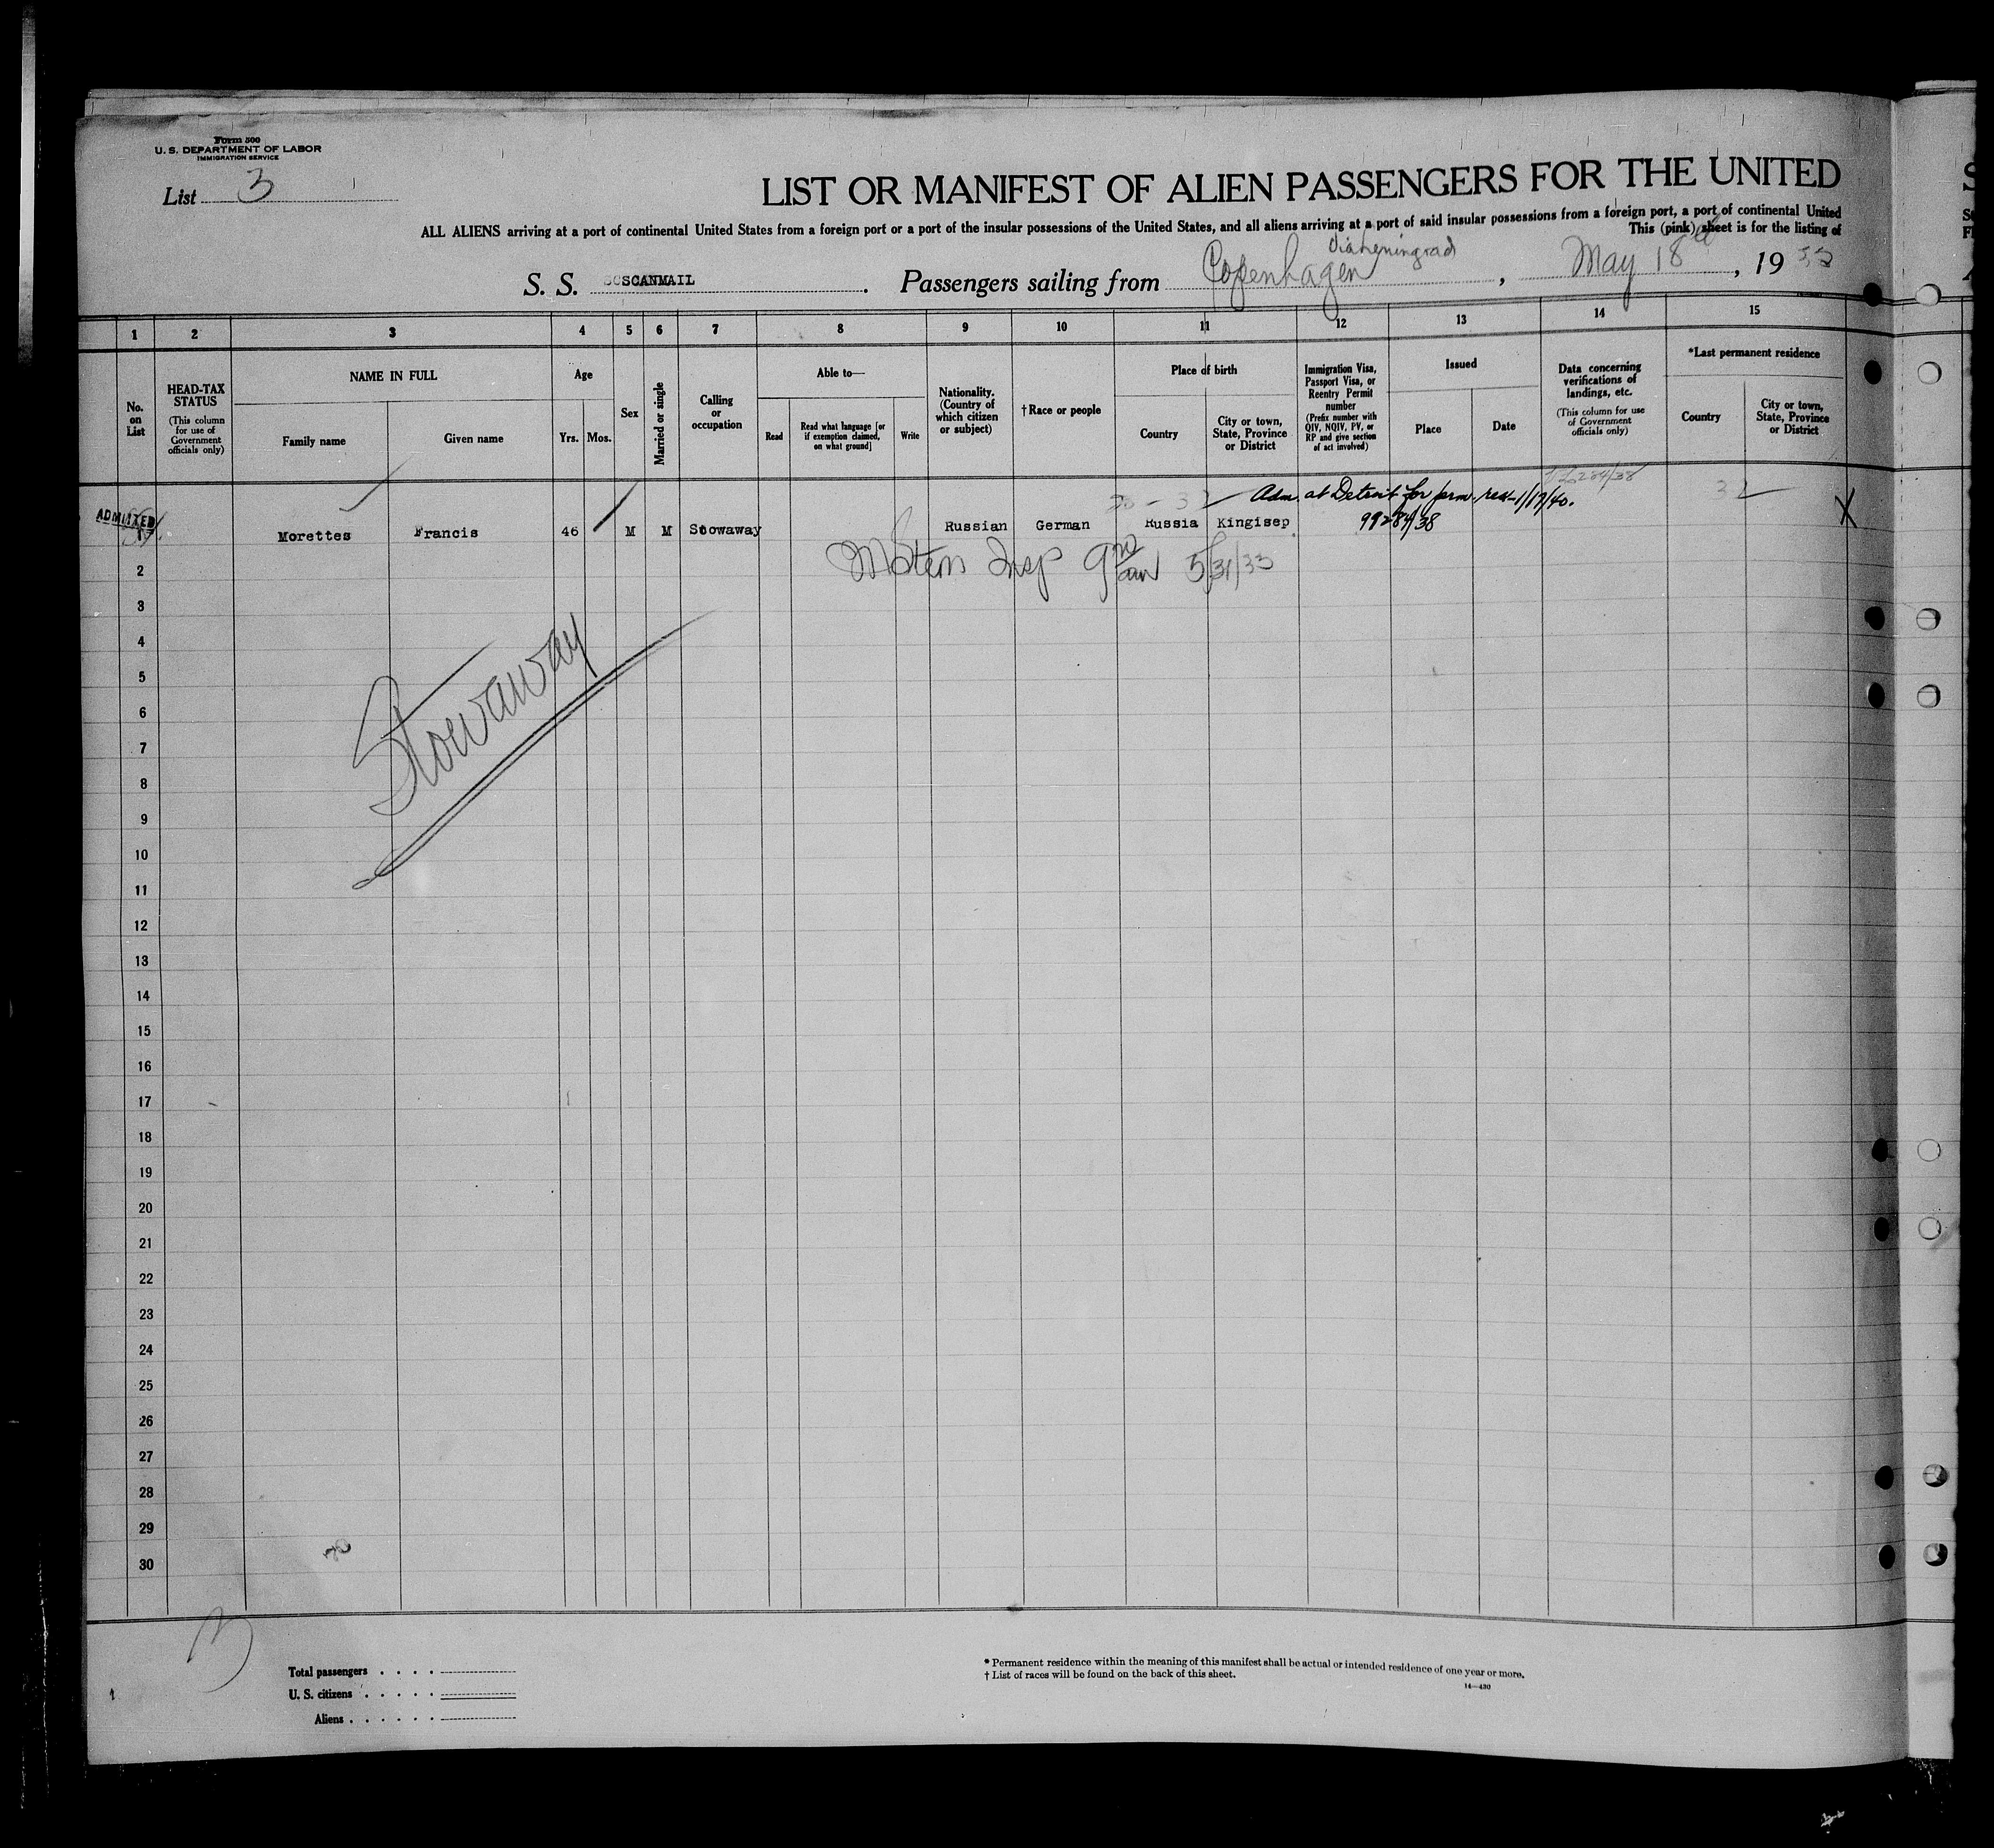 Form 500
U. S. DEPARTMENT OF LABOR
IMMIGRATION SERVICE
List 3
LIST OR MANIFEST OF ALIEN PASSENGERS FOR THE UNITED
ALL ALIENS arriving at a port of continental United States from a foreign port or a port of the insular possessions of the United States, and all aliens arriving at a port of said insular possessions from a foreign port, a port of continental United
This (pink) sheet is for the listing of
via Leningrad
S. S. SCANMAIL. Passengers sailing from Copenhagen, May 18th, 1933
1 2 3 4 5 6 7 8 9 10 11 12 13 14 15
No. on List
HEAD-TAX STATUS
(This column for use of Government officials only)
NAME IN FULL
Family name
Given name
Age
Yrs. Mos.
Sex
Married or single
Calling or occupation
Able to—
Read
Read what language [or if exemption claimed, on what ground]
Write
Nationality. (Country of which citizen or subject)
†Race or people
Place of birth
Country
City or town, State, Province or District
Immigration Visa, Passport Visa, or Reentry Permit number
(Prefix number with QIV, NQIV, PV, or RP and give section of act involved)
Issued
Place
Date
Data concerning verifications of landings, etc.
(This column for use of Government officials only)
*Last permanent residence
Country
City or town, State, Province or District
Adm. at Detroit for perm. res. 1/17/40.
99284/38
ADMITTED
Morettes Francis 46 M M Stowaway Russian German Russia Kingisep
Insp 9 30 am 5/31/33
Stowaway
2
3
4
5
6
7
8
9
10
11
12
13
14
15
16
17
18
19
20
21
22
23
24
25
26
27
28
29
30
3
Total passengers . . . .
U. S. citizens . . . . .
Aliens . . . . . .
* Permanent residence within the meaning of this manifest shall be actual or intended residence of one year or more.
† List of races will be found on the back of this sheet.
14—430